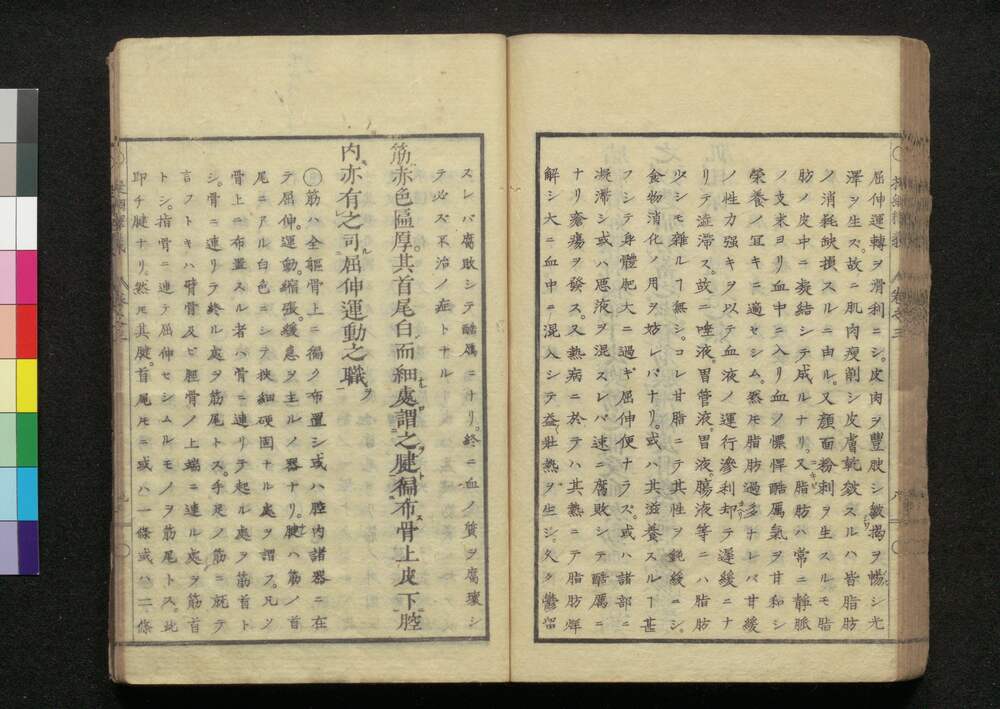 屈伸運轉ヲ滑利ニシ。皮肉ヲ豐腴シ皺揭ヲ暢シ光
澤ヲ生ス。故ニ肌肉瘦削シ皮膚乾皺スルハ皆脂肪
ノ消耗缺損スルニ由ル。又顔面粉刺ヲ生スルモ脂
肪ノ皮中ニ凝結シテ成ルナリ。又脂肪ハ常ニ靜脈
ノ支末ヨリ血中ニ入リ血ノ慓悍酷厲氣ヲ甘和シ
榮養ノ冝キニ適セシム。然モ脂肪過多ナレバ甘緩
ノ性力强キヲ以テ血液ノ運行滲利却テ遲緩ニナ
リテ澁滞ス。故ニ唾液胃管液。胃液。膓液等ニハ脂肪
少シモ雜ルヿ無シ。コレ甘脂ニテ其性ヲ鈍緩ニシ。
食物消化ノ用ヲ妨レバナリ。或ハ其滋養スルヿ甚
フシテ身體肥大ニ過ギ屈伸便ナラズ。或ハ諸部ニ
凝滞シ或ハ悪液ヲ混スレバ速ニ腐敗シテ酷厲ニ
ナリ瘡瘍ヲ發ス。又熱病ニ於テハ其熱ニテ脂肪焊
解シ大ニ血中ニ混入シテ益壯熱ヲ生シ。久ク鬱留
スレバ腐敗シテ酷厲ニナリ。終ニ血ノ質ヲ腐壞シ
テ必ズ不治ノ症トナル
筋赤色區厚。其首尾白而細處謂之腱徧布骨上皮下腔
内亦有之司屈伸運動之職
筋ハ全軀骨上ニ徧ク布置シ或ハ腔内諸器ニ在
テ屈伸。運動。縮張。緩急ヲ主ルノ器ナリ。腱ハ筋ノ首
尾ニアル白色ニシテ狹細硬固ナル處ヲ謂フ。凡ソ
骨上ニ布置スル者ハ骨ニ連リテ起ル處ヲ筋首ト
シ。骨ニ連リテ終ル處ヲ筋尾トス。手足ノ筋ニ就テ
言フトキハ臂骨及ビ脛骨ノ上端ニ連ル處ヲ筋首
トシ。指骨ニ連テ屈伸セシムルモノヲ筋尾トス。此
即チ腱ナリ。然モ其腱。首尾モニ或ハ一條或ハ二條